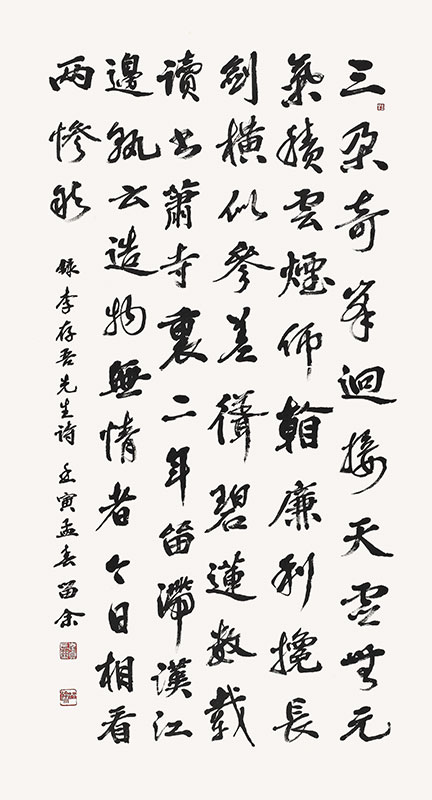 三朵奇峯迥接天虛無元
氣積雲煙仰廉利攙長
劍橫似參差擢碧蓮數載
讀書蕭寺裏二年留滯漢江
邊孰云造物無情者今日相看
兩慘然
録李存吾先生诗 壬寅孟春 留余